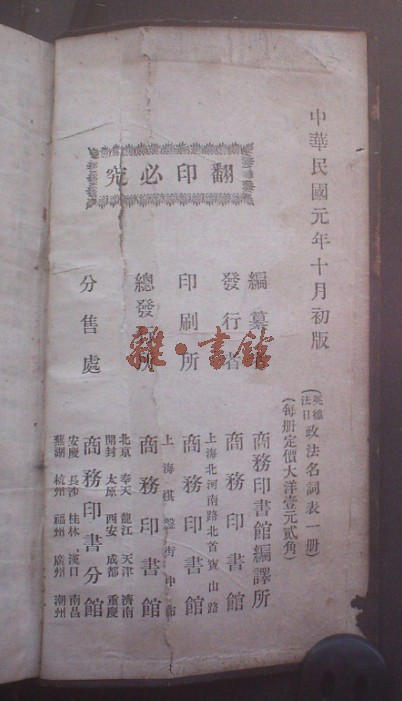 中華民國元年十月初版
(英德法日政法名詞表一冊)
(每冊定價大洋壹元貳角)
翻印必究
編纂者
商務印書館編譯所
發行者
商務印書館
上海北河南路北首寶山路
印刷所
商務印書館
上海棋盤街中市
總發行所
商務印書館
分售處
北京 奉天 龍江 天津 濟南
開封 太原 西安 成都 重慶
商務印書分館
安慶 長沙 桂林 漢口 南昌
蕪湖 杭州 福州 廣州 潮州
雜·書館